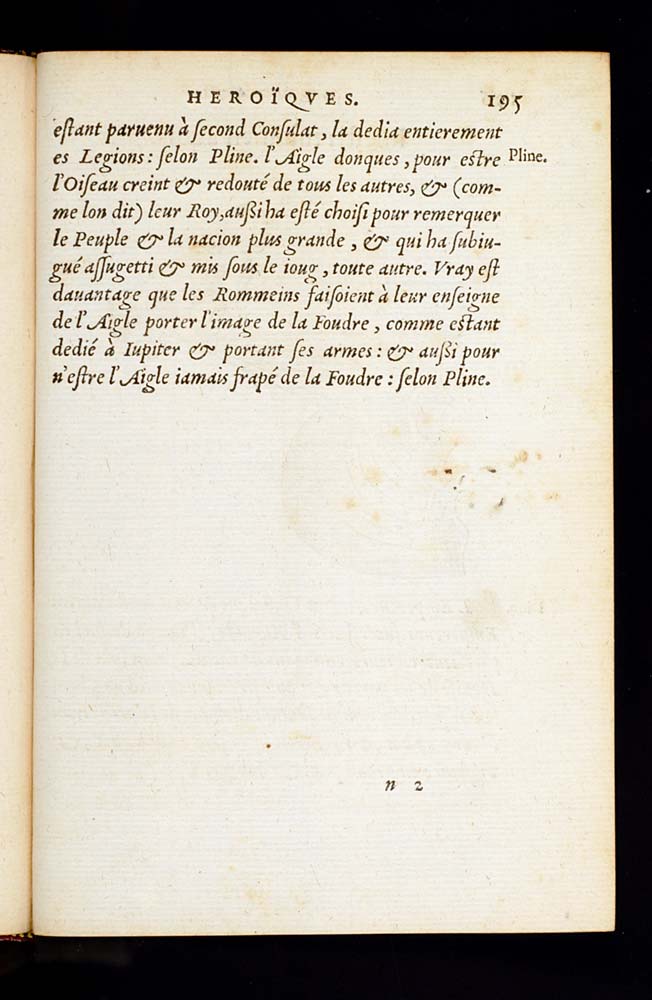 HEROÏQVES. 195
eſtant paruenu à ſecond Conſulat, la dedia entierement
es Legions: ſelon Pline. l'Aigle donques, pour eſtre Pline.
l'Oiſeau creint & redouté de tous les autres, & (com-
me lon dit) leur Roy, auſsi ha eſté choiſi pour remerquer
le Peuple & la nacion plus grande, & qui ha ſubiu-
gué aſſugetti & mis ſous le ioug, toute autre. Vray eſt
dauantage que les Rommeins faiſoient à leur enſeigne
de l'Aigle porter l'image de la Foudre, comme eſtant
dedié à Iupiter & portant ſes armes: & auſsi pour
n'eſtre l'Aigle iamais frapé de la Foudre: ſelon Pline.
n 2